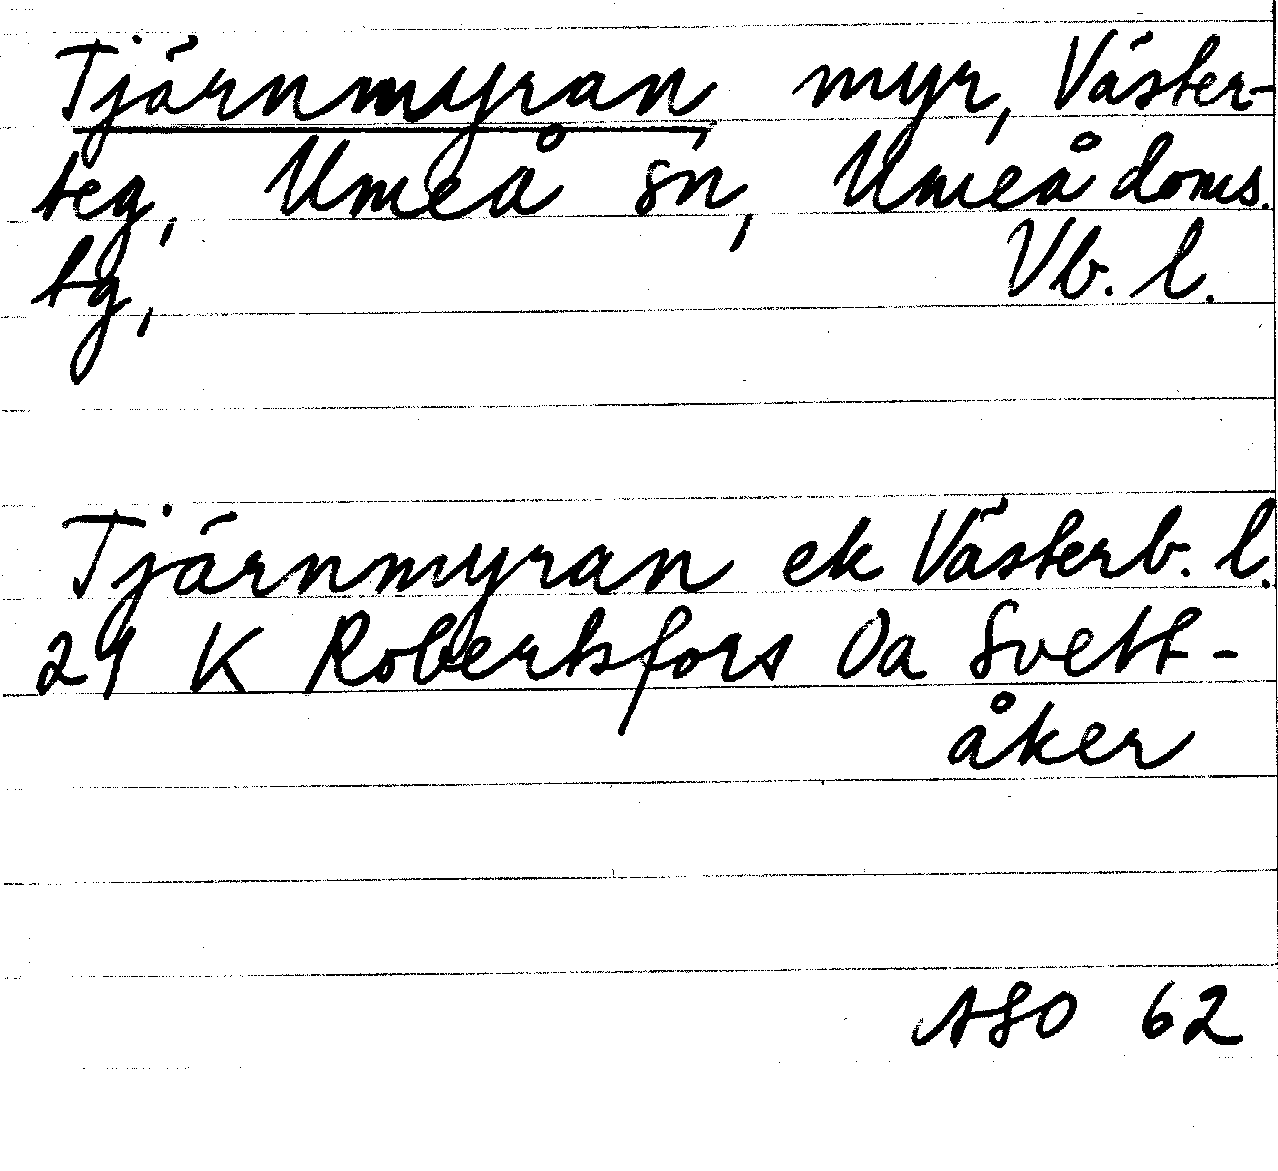 Tjärnmyran, myr, Väster-
teg, Umeå sn, Umeå doms.
tg, Vb. l.
Tjärnmyran ek Västerb. l.
24 K Robertsfors Oa Svett-
åker
ASO 62